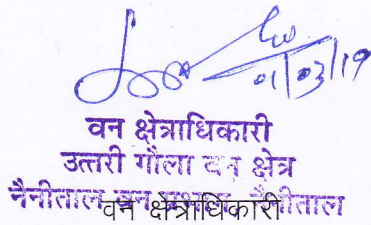 01/03/19
वन क्षेत्राधिकारी
उत्तरी गौला वन क्षेत्र
नैनीताल वन प्रभाग, नैनीताल
वन क्षेत्राधिकारी